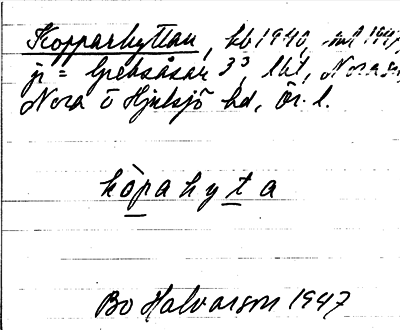 Kopparhyttan, kb 1940, 1947,
ji = Grebsåsar 3³, lht, Nora sn,
Nora o Hjulsjö hd, Ör. l.
kòpahyta
Bo Halvarson 1947